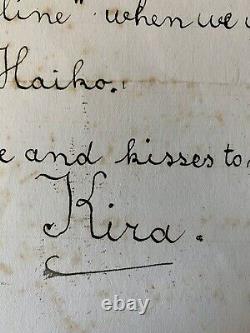 line" when we
Haiko.
and kisses to
Kira.